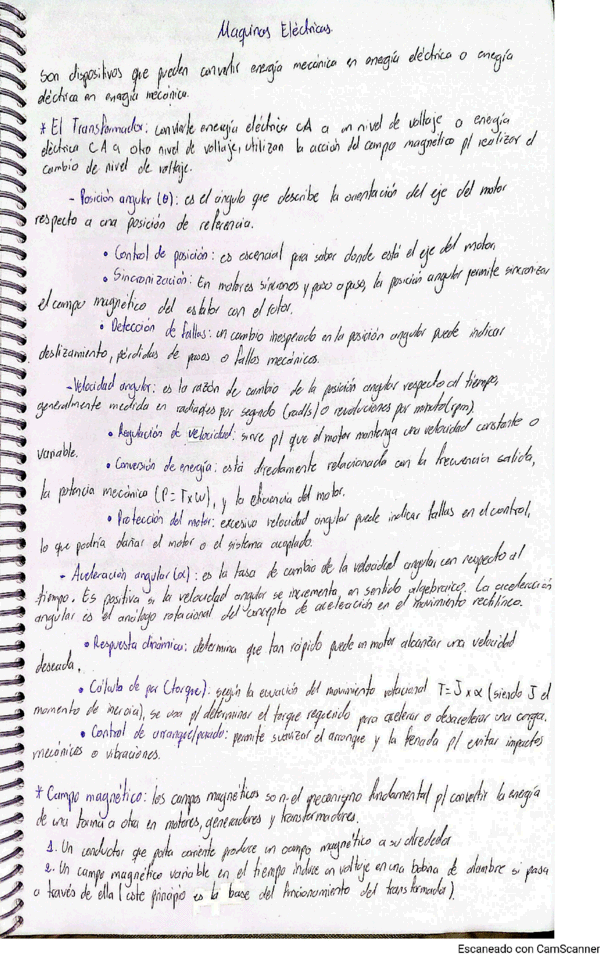 Maquinas Eléctricas.
Son dispositivos que pueden convertir energía mecánica en energía eléctrica o energía
eléctrica en energía mecánica.
* El Transformador: convierte energía eléctrica CA a un nivel de voltaje o energía
eléctrica CA a otro nivel de voltaje, utilizan la acción del campo magnético p/ realizar el
cambio de nivel de voltaje.
- Posición angular (θ): es el ángulo que describe la orientación del eje del motor
respecto a una posición de referencia.
• Control de posición: es escencial para saber donde está el eje del motor.
• Sincronización: En motores síncronos y paso a paso, la posición angular permite sincronizar
el campo magnético del estator con el rotor.
• Detección de fallas: un cambio inesperado en la posición angular puede indicar
deslizamiento, pérdidas de pasos o fallos mecánicos.
- Velocidad angular: es la razón de cambio de la posición angular respecto al tiempo,
generalmente medida en radianes por segundo (rad/s) o revoluciones por minuto (rpm).
• Regulación de velocidad: sirve p/ que el motor mantenga una velocidad constante o
variable.
• Conversión de energía: está directamente relacionada con la frecuencia salida,
la potencia mecánica (P = T x ω), y la eficiencia del motor.
• Protección del motor: excesiva velocidad angular puede indicar fallas en el control,
lo que podría dañar el motor o el sistema acoplado.
- Aceleración angular (α): es la tasa de cambio de la velocidad angular con respecto al
tiempo. Es positiva si la velocidad angular se incrementa, en sentido algebraico. La aceleración
angular es el análogo rotacional del concepto de aceleración en el movimiento rectilíneo.
• Respuesta dinámica: determina que tan rápido puede un motor alcanzar una velocidad
deseada.
• Cálculo de par (torque): según la ecuación del movimiento rotacional T = J x α (siendo J el
momento de inercia), se usa p/ determinar el torque requerido para acelerar o desacelerar una carga.
• Control de arranque/parada: permite suavizar el arranque y la frenada p/ evitar impactos
mecánicos o vibraciones.
* Campo magnético: los campos magnéticos son el mecanismo fundamental p/ convertir la energía
de una forma a otra en motores, generadores y transformadores.
1. Un conductor que porta corriente produce un campo magnético a su alrededor
2. Un campo magnético variable en el tiempo induce un voltaje en una bobina de alambre si pasa
a través de ella (este principio es la base del funcionamiento del transformador).
Escaneado con CamScanner